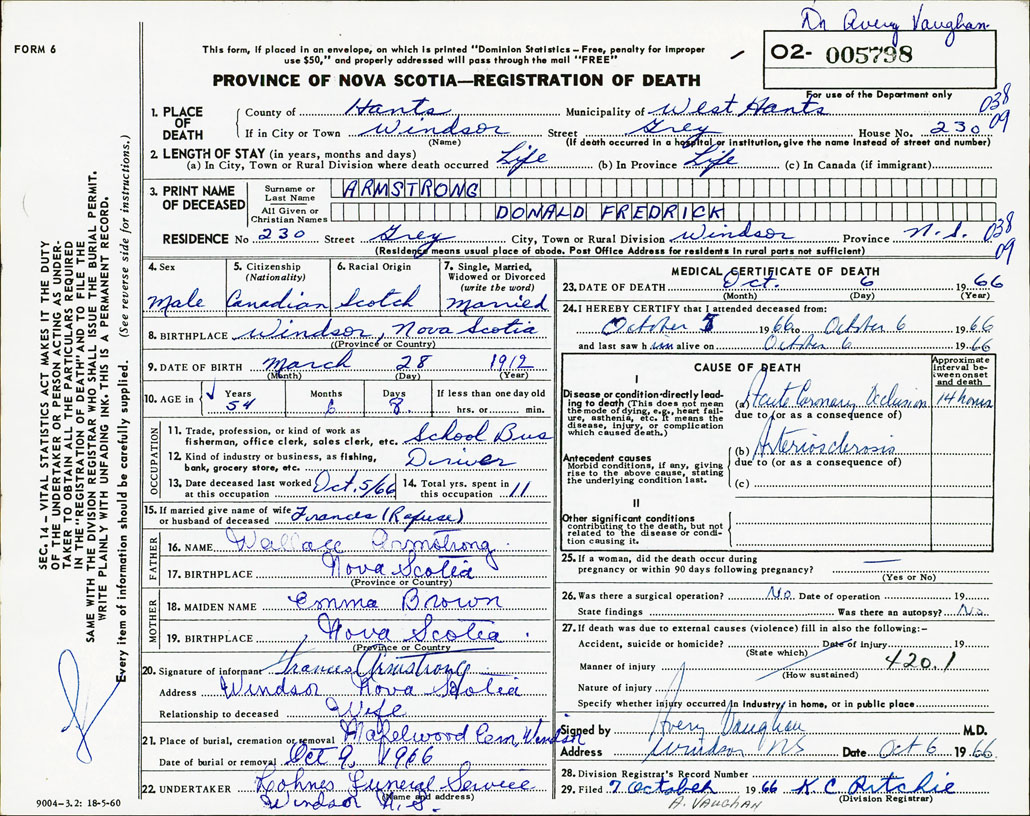 Dr Avery Vaughan
FORM 6
This form, if placed in an envelope, on which is printed "Dominion Statistics – Free, penalty for improper
use $50," and properly addressed will pass through the mail "FREE"
02- 005798
PROVINCE OF NOVA SCOTIA—REGISTRATION OF DEATH
For use of the Department only
1. PLACE OF DEATH County of Hants Municipality of West Hants 038
If in City or Town Windsor Street Grey House No. 230 09
(Name) (If death occurred in a hospital or institution, give the name instead of street and number)
2. LENGTH OF STAY (in years, months and days)
(a) In City, Town or Rural Division where death occurred Life (b) In Province Life (c) In Canada (if immigrant)
3. PRINT NAME OF DECEASED Surname or Last Name ARMSTRONG
All Given or Christian Names DONALD FREDRICK
RESIDENCE No 230 Street Grey City, Town or Rural Division Windsor Province N.S. 038
(Residence means usual place of abode. Post Office Address for residents in rural parts not sufficient) 09
4. Sex 5. Citizenship (Nationality) 6. Racial Origin 7. Single, Married, Widowed or Divorced (write the word)
Male Canadian Scotch Married
8. BIRTHPLACE Windsor, Nova Scotia
(Province or Country)
9. DATE OF BIRTH March 28 1912
(Month) (Day) (Year)
10. AGE in Years Months Days If less than one day old
54 6 8 hrs. or min.
OCCUPATION
11. Trade, profession, or kind of work as
fisherman, office clerk, sales clerk, etc. School Bus
12. Kind of industry or business, as fishing,
bank, grocery store, etc. Driver
13. Date deceased last worked at this occupation Oct. 5/66 14. Total yrs. spent in this occupation 11
15. If married give name of wife
or husband of deceased Frances (Rafuse)
FATHER
16. NAME Wallace Armstrong
17. BIRTHPLACE Nova Scotia
(Province or Country)
MOTHER
18. MAIDEN NAME Emma Brown
19. BIRTHPLACE Nova Scotia
(Province or Country)
20. Signature of informant Frances Armstrong
Address Windsor Nova Scotia
Relationship to deceased Wife
21. Place of burial, cremation or removal Mapelwood Cem, Windsor
Date of burial or removal Oct 9, 1966
22. UNDERTAKER Lohnes Funeral Service
(Name and address)
Windsor N.S.
MEDICAL CERTIFICATE OF DEATH
23. DATE OF DEATH Oct. 6 1966
(Month) (Day) (Year)
24. I HEREBY CERTIFY that I attended deceased from:
October 5 1966 to October 6 1966
and last saw him alive on October 6 1966
CAUSE OF DEATH
Approximate interval between onset and death
I
Disease or condition directly leading to death (This does not mean
the mode of dying, e.g., heart failure, asthenia, etc. It means the
disease, injury, or complication which caused death.)
(a) Acute Coronary Occlusion 14 hours
due to (or as a consequence of)
Antecedent causes
Morbid conditions, if any, giving
rise to the above cause, stating
the underlying condition last.
(b) Arteriosclerosis
due to (or as a consequence of)
(c)
II
Other significant conditions
contributing to the death, but not
related to the disease or condition causing it.
25. If a woman, did the death occur during
pregnancy or within 90 days following pregnancy? —
(Yes or No)
26. Was there a surgical operation? No. Date of operation 19
State findings Was there an autopsy? No.
27. If death was due to external causes (violence) fill in also the following:–
Accident, suicide or homicide? Date of injury 19
(State which)
Manner of injury 420.1
(How sustained)
Nature of injury
Specify whether injury occurred in Industry, in home, or in public place
Signed by Avery Vaughan M.D.
Address Windsor NS Date Oct 6 1966
28. Division Registrar's Record Number
29. Filed 7 October 1966 K C Ritchie
(Division Registrar)
A. VAUGHAN
SEC. 14 – VITAL STATISTICS ACT MAKES IT THE DUTY
OF THE UNDERTAKER OR PERSON ACTING AS UNDERTAKER
TO OBTAIN ALL THE PARTICULARS REQUIRED
IN THE "REGISTRATION OF DEATH" AND TO FILE THE
SAME WITH THE DIVISION REGISTRAR WHO SHALL ISSUE THE BURIAL PERMIT.
WRITE PLAINLY WITH UNFADING INK. THIS IS A PERMANENT RECORD.
Every item of information should be carefully supplied. (See reverse side for instructions.)
9004-3.2: 18-5-60